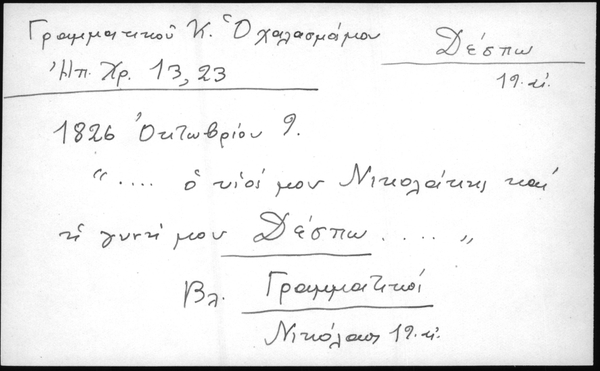 Γραμματικοῦ Κ. Ὁ χαλασμὸς μου
Δέσπω
Ἠπ. Χρ. 13, 23
19. αἰ.
1826 Ὀκτωβρίου 9.
".... ὁ υἱός μου Νικολάκης καὶ
ἡ γυνή μου Δέσπω .... "
Βλ. Γραμματικοί
Νικόλαος 19. αἰ.